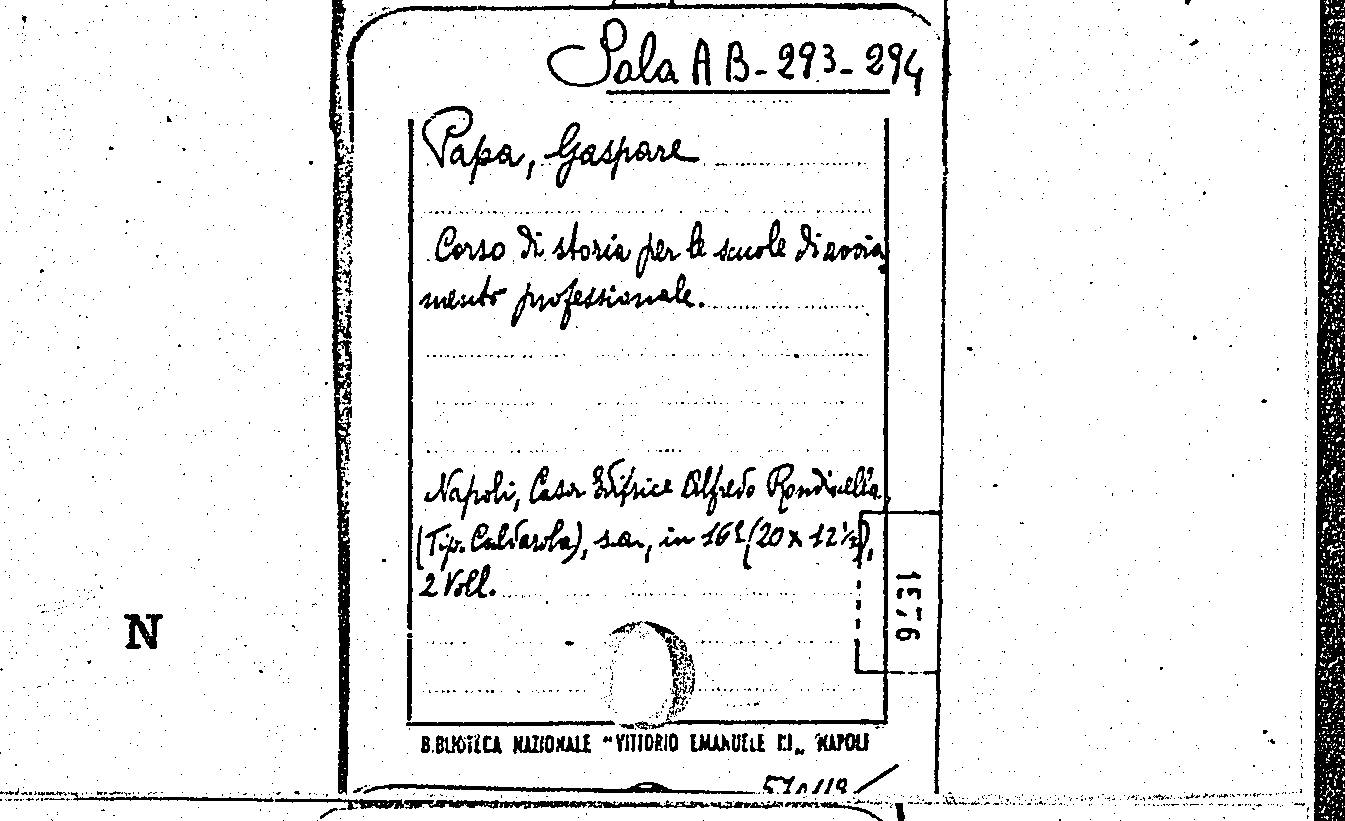 Sala A B - 293 - 294
Papa, Gaspare
Corso di storia per le scuole di avvia
mento professionale.
Napoli, Casa Editrice Alfredo Rondinella
(Tip. Caldarola), s.a., in 16º (20 x 12 ½),
2 Voll.
1576
N
BIBLIOTECA NAZIONALE "VITTORIO EMANUELE III" NAPOLI